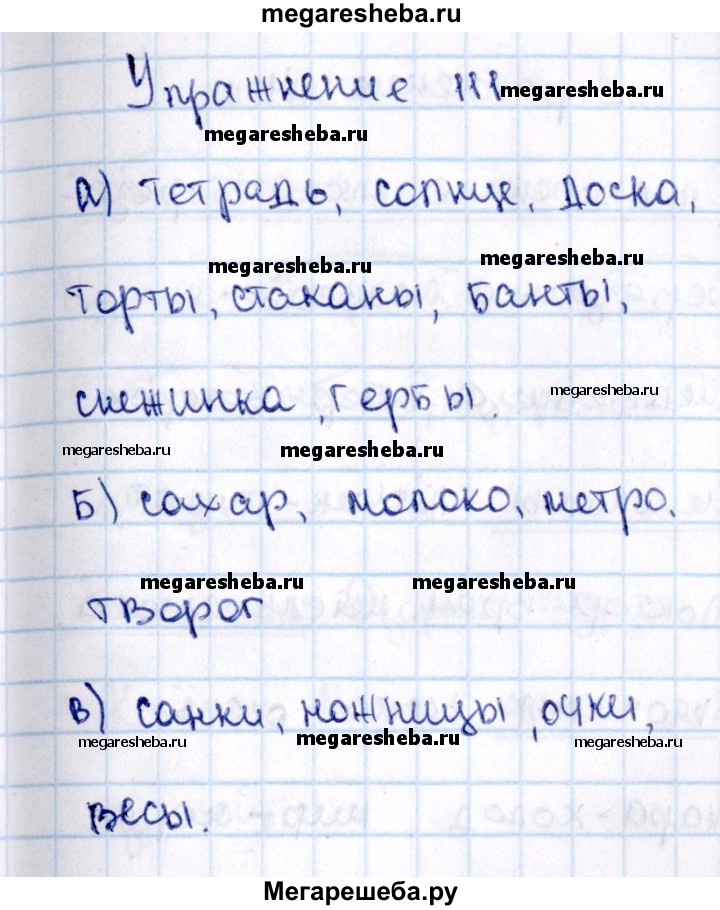 megaresheba.ru
Упражнение 111 megaresheba.ru
megaresheba.ru
а) тетрадь, солнце, доска,
megaresheba.ru megaresheba.ru
торты, стаканы, банты,
снежинка, гербы. megaresheba.ru
megaresheba.ru megaresheba.ru
Б) сахар, молоко, метро.
megaresheba.ru megaresheba.ru
творог
в) санки, ножницы, очки,
megaresheba.ru megaresheba.ru megaresheba.ru
весы.
Мегарешеба.ру